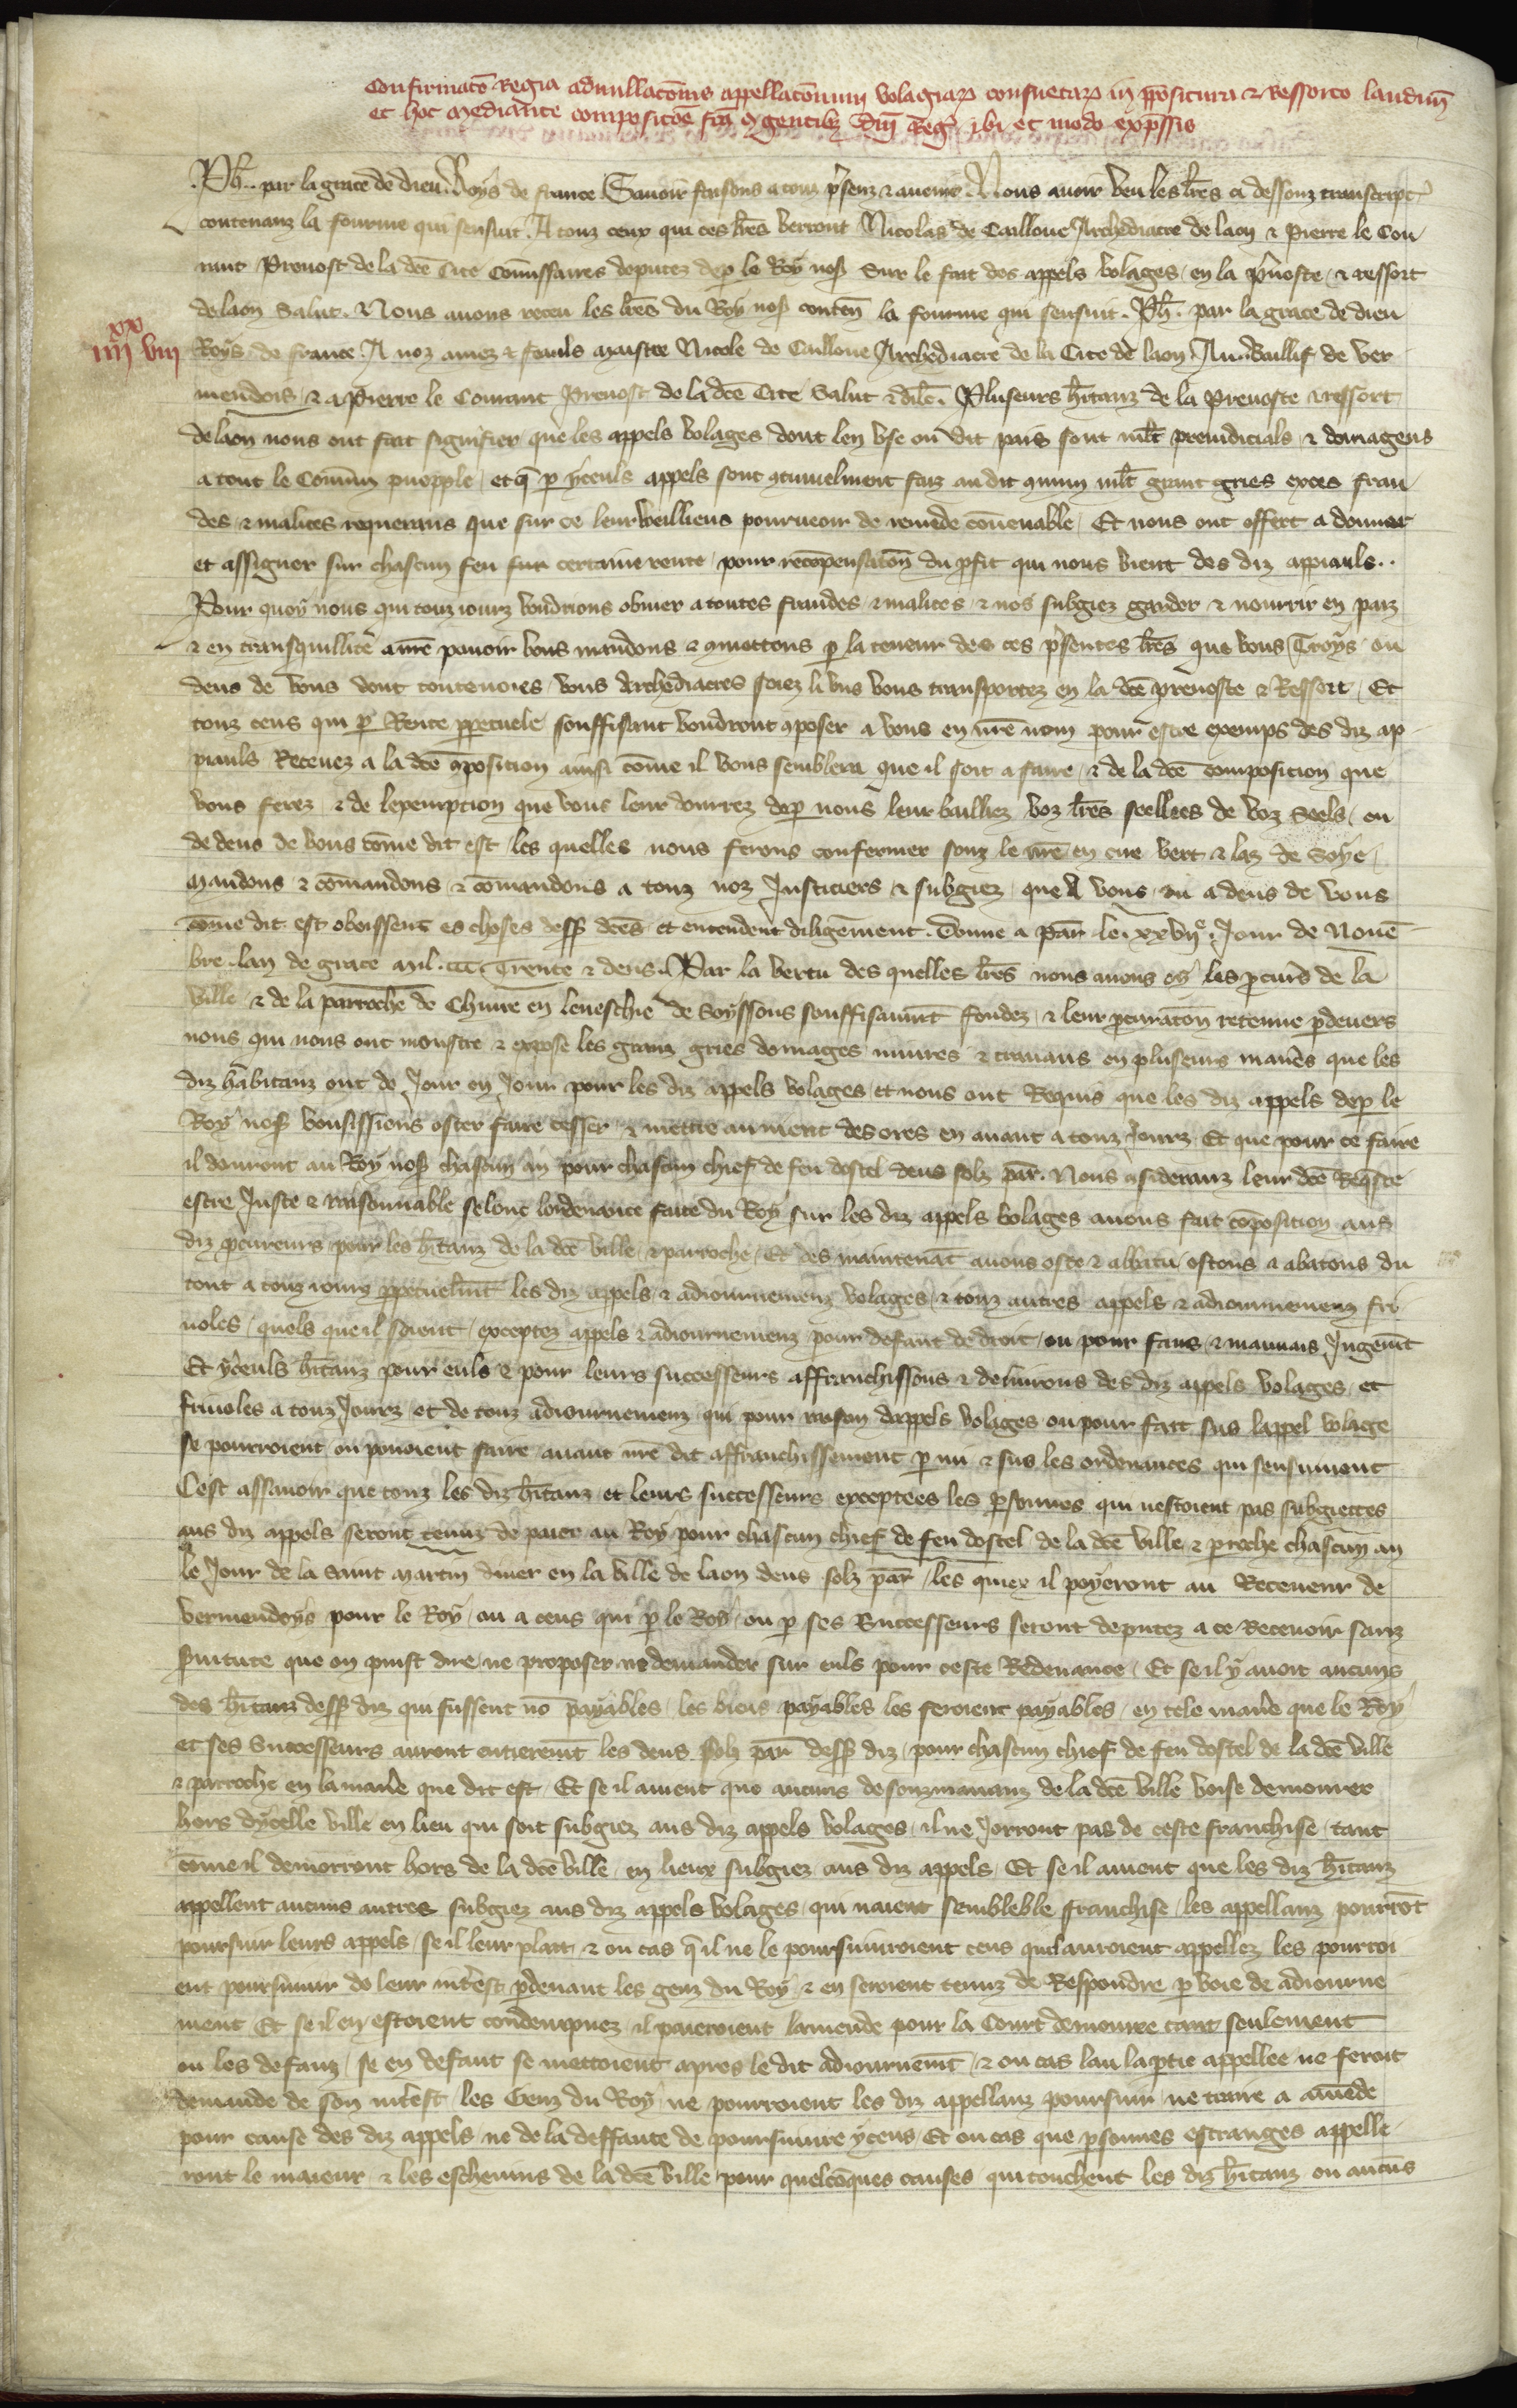 Confirmacō Regia adnullacōnis appellacōnum volagiaꝝ consuetaꝝ in ꝓpositura ⁊ Ressorto laudun̄
et hoc mediante composicōē fc̄a ꝯ gentibꝫ dn̄i Reg̉ ibi et modo exp̄ssis
.Ph̄. par la grace de dieu Roys de france Sauoir faisons a touz p̄senz ⁊ auenir. Nous auoir veu les lr̄es ci dessouz transcript̉
contenanz la fourme qui sensuit. A touz ceux qui ces lr̄es verront Nicolas de Cailloue Archediacre de laon ⁊ Pierre le Cou
rant Preuost de la dc̄e Cite Cōmissaires deputez deꝑ le Roy noſ̄ Sur le fait des appels volages en la p̄uoste ⁊ ressort
de laon Salut. Nous auons receu les lr̄es du Roy noſ̄ conten̄ la fourme qui sensuit. Ph̄. par la grace de dieu
xx
iiii viii
Roys de france. A noz amez ⁊ feauls maistre Nicole de Cailloue Archediacre de la Cite de laon Au Baillif de ver
mendois ⁊ a Pierre le Courant Preuost de la dc̄e Cite Salut ⁊ dil̄c. Pluseurs h̄itanz de la Preuoste ⁊ ressort
de laon nous ont fait signifier que les appels volages dont len vse ou dit pais sont ml̄t preiudicials ⁊ domageus
a tout le Cōmun pueople et q̄ ꝑ yceuls appels sont ꝯtinuelment faiz au dit ꝯmun ml̄t grant gries exces frau
des ⁊ malices requerans que sur ce leur veilliens pourueoir de remede cōuenable Et nous ont offert a donner
et assigner sur chascun feu sur certaine rente pour recōpensacōn du ꝓfit qui nous vient des diz appiauls..
Pour quoy nous qui touz iourz voudrions obuier a toutes fraudes ⁊ malices ⁊ nos subgiez garder ⁊ nourrir en paiz
⁊ en transquillite a nr̄e pouoir vous mandons ⁊ ꝯmettons ꝑ la teneur de ces p̄sentes lr̄es que vous Troys ou
deus de vous dont toutenoies vous Archediacres soiez li vns vous transportez en la dc̄e preuoste ⁊ Ressort Et
touz ceus qui ꝑ Rente ꝑpetuele souffisant voudront ꝯposer a vous en nr̄e nom pour estre exemps des diz ap
piauls Receuez a la dc̄e ꝯposition ainsi cōme il vous semblera que il soit a faire ⁊ de la dc̄e composicion que
vous ferez ⁊ de lexempcion que vous leur donrrez deꝑ nous leur bailliez voz lr̄es seellees de voz Seels ou
de deus de vous cōme dit est les quelles nous ferons confermer souz le nr̄e en cire vert ⁊ laz de Soye
Mandons ⁊ cōmandons ⁊ cōmandons a touz noz Iusticiers ⁊ subgiez que A vous ou a deus de vous
cōme dit est obeissent es choses dessꝰ dc̄es et entendent diligēment. Donne a Par̄. le. xxvijᵉ. Iour de Nouē
bre. lan de grace Mil. ccc. Trente ⁊ deus. Par la vertu des quelles lr̄es nous auons oy les ꝓcur̄s de la
ville ⁊ de la parroche de Chiuire en leueschie de Soyssons souffisanm̄t fondez ⁊ leur ꝓcuracōn retenue ꝑdeuers
nous qui nous ont monstre ⁊ expose les granz gries domages iniures ⁊ trauaus en pluseurs maneres que les
diz habitanz ont de Iour en Iour pour les diz appels volages et nous ont Requis que les diz appels deꝑ le
Roy noſ̄ vousissions oster faire cesser ⁊ mettre au nient desores en auant a touz Iourz Et que pour ce faire
il donront au Roy noſ̄ chascun an pour chascun chief de feu dostel deus solz par̄. Nous ꝯsideranz leur dc̄e Req̄ste
estre Iuste ⁊ raisonnable selonc lordenance faite du Roy sur les diz appels volages auons fait cōposition aus
diz ꝓcureurs pour les h̄itanz de la dc̄e ville ⁊ parroche Et des maintenāt auons oste ⁊ abbatu ostons ⁊ abatons du
tout a touz iours ꝑpetuelm̄t les diz appels ⁊ adiournemenz volages ⁊ touz autres appels ⁊ adiournemenz fri
uoles quels que il soient exceptez appels ⁊ adiournemenz pour defaut de droit ou pour faus ⁊ mauuais Iugem̄t
Et yceuls h̄itanz pour euls ⁊ pour leurs successeurs affranchissons ⁊ deliurons des diz appels volages et
friuoles a touz Iourz et de touz adiournemenz qui pour raison dappels volages ou pour fait sus lappel volage
se pourroient ou pouoient faire auant nr̄e dit affranchissement ꝑ mi ⁊ sus les ordenances qui sensuiuent
Cest assauoir que touz les diz h̄itanz et leurs successeurs exceptees les ꝑsonnes qui nestoient pas subgiettes
aus diz appels seront tenuz de paier au Roy pour chascun chief de feu dostel de la dc̄e ville ⁊ ꝑroche chascun an
le Iour de la saint martin diuer en la ville de laon deus solz par̄ les quiex il poyeront au Receueur de
vermendoys pour le Roy ou a ceus qui ꝑ le Roy ou ꝑ ses Successeurs seront deputez a ce Receuoir sanz
ẜuitute que on puist dire ne proposer ne demander sur euls pour ceste Redeuance Et se il y auoit aucuns
des h̄itanz dessꝰ diz qui fussent nō payables les biens payables les feroient payables en tele maniē que le Roy
et ses Successeurs auront entierem̄t les deus solz par̄ dessꝰ diz pour chascun chief de feu dostel de la dc̄e ville
⁊ parroche en la maniē que dit est Et se il auient que aucuns desouzmananz de la dc̄e ville voise demourer
hors dycelle ville en lieu qui soit subgiez aus diz appels volages il ne Iorront pas de ceste franchise tant
cōme il demorront hors de la dc̄e ville en lieux subgiez aus diz appels Et se il auient que les diz h̄itanz
appellent aucuns autres subgiez aus diz appels volages qui naient semblelble franchise les appellanz pourrōt
poursuir leurs appels se il leur plait ⁊ ou cas q̄ il ne le poursuiuroient ceus quil auroient appellez les pourroi
ent poursuiuir de leur int̄est ꝑdeuant les genz du Roy ⁊ en seroient tenuz de Respondre ꝑ voie de adiourne
ment Et se il en estoient condempnez il paieroient lamende pour la Court demoure tant seulement
ou les defauz se en defaut se mettoient apres le dit adiournem̄t ⁊ ou cas lau la ꝑtie appellee ne feroit
demande de son int̄est les Genz du Roy ne pourroient les diz appellanz poursuir ne traire a amēde
pour cause des diz appels ne de la deffaute de poursuiure yceus Et ou cas que ꝑsonnes estranges appelle
ront le maieur ⁊ les escheuins de la dc̄e ville pour quelcōques causes qui touchent les diz h̄itanz ou aucūs